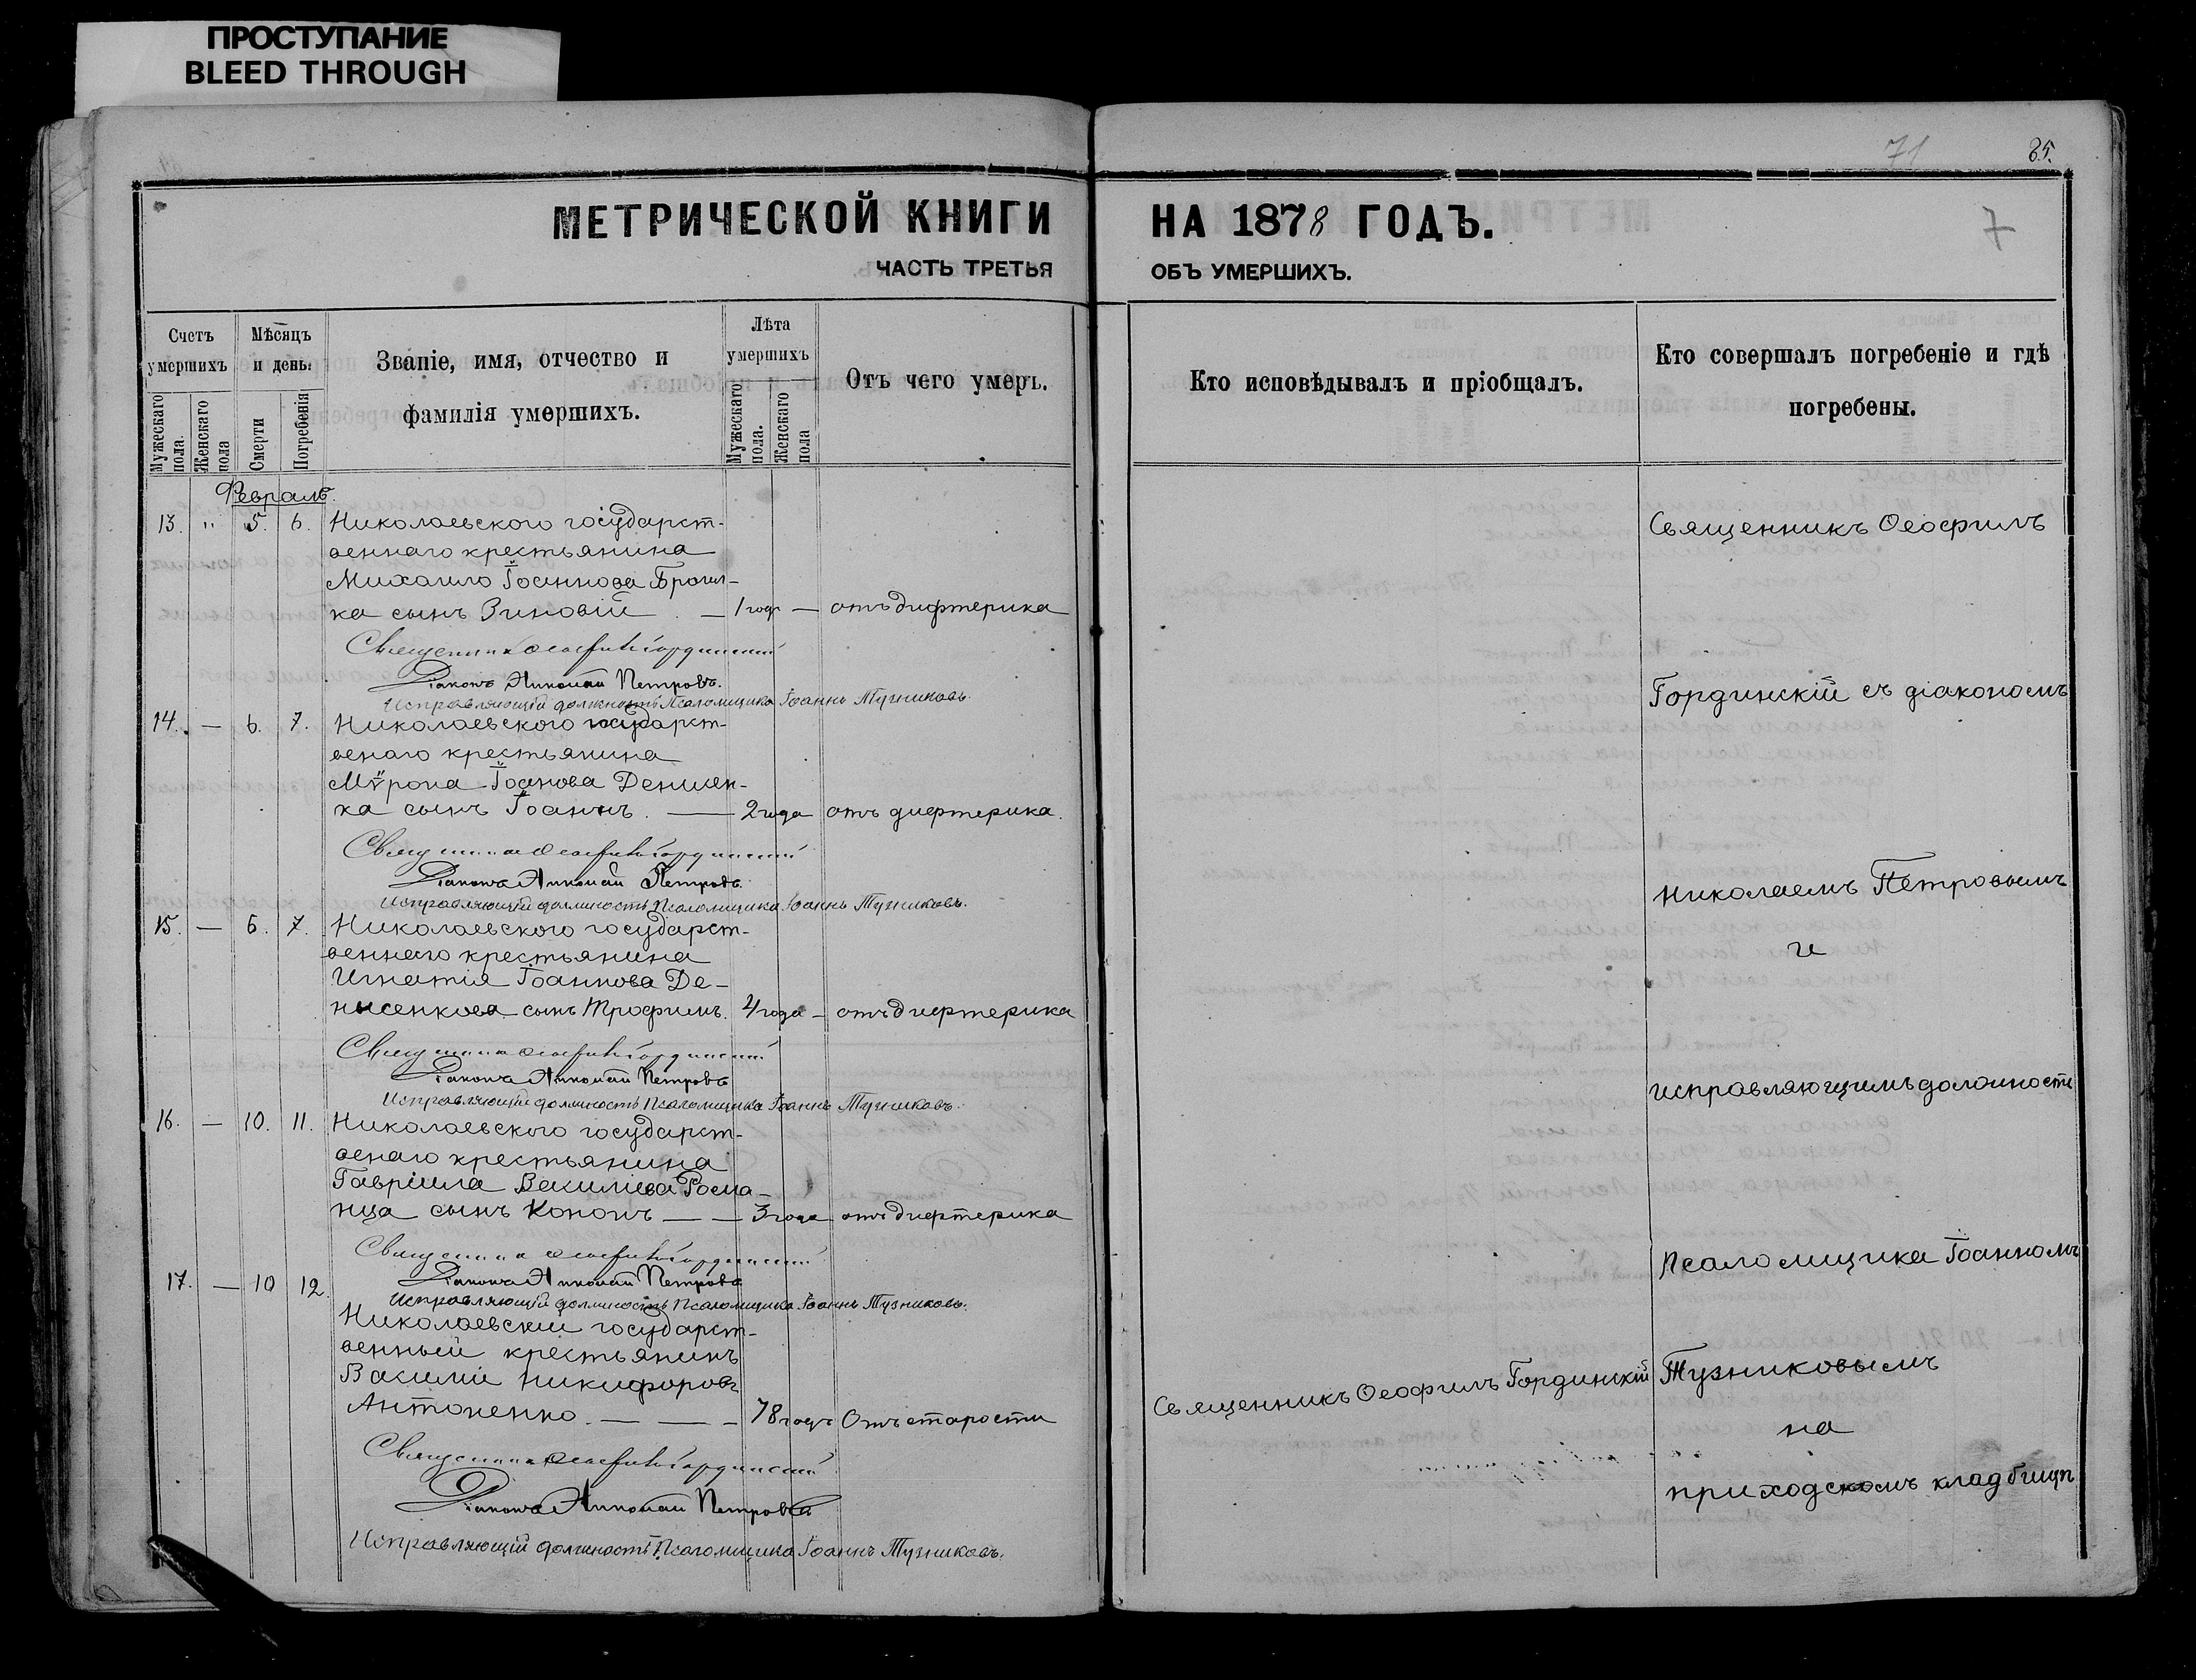 ПРОСТУПАНИЕ
BLEED THROUGH
71
85.
МЕТРИЧЕСКОЙ КНИГИ НА 1878 ГОДЪ.
7
ЧАСТЬ ТРЕТЬЯ ОБЪ УМЕРШИХЪ.
Счетъ умершихъ
Мужескаго пола.
Женскаго пола
Мѣсяцъ и день.
Смерти
Погребенія
Званіе, имя, отчество и фамилія умершихъ.
Лѣта умершихъ
Мужескаго пола.
Женскаго пола
Отъ чего умеръ.
Кто исповѣдывалъ и пріобщалъ.
Кто совершалъ погребеніе и гдѣ погребены.
Февраль.
13. " 5. 6. Николаевского государст-
веннаго крестьянина
Михаило Іоаннова
ка сынъ Зиновій — 1 годъ — отъ дифтерика
Священникъ Ѳеофилъ Гординскій
Діаконъ Николай Петровъ.
Исправляющій должность Псаломщика Іоаннъ Тузниковъ.
14. — 6. 7. Николаевского государст-
венаго крестьянина
Мѵрона Іоанова Денисен-
ка сынъ Іоаннъ. — 2 года отъ дифтерика.
Священникъ Ѳеофилъ Гординскій
Діаконъ Николай Петровъ
Исправляющій должность Псаломщика Іоаннъ Тузниковъ.
15. — 6. 7. Николаевского государст-
веннаго крестьянина
Игнатія Іоаннова Де-
нисенкова сынъ Трофимъ. 4 года — отъ дифтерика
Священникъ Ѳеофилъ Гординскій
Діаконъ Николай Петровъ
Исправляющій должность Псаломщика Іоаннъ Тузниковъ.
16. — 10. 11. Николаевского государст-
венаго крестьянина
Гавріила Василиева Рома-
нца сынъ Кононъ — — 3 года отъ дифтерика
Священникъ Ѳеофилъ Гординскій
Діаконъ Николай Петровъ
Исправляющій должность Псаломщика Іоаннъ Тузниковъ.
17. — 10 12. Николаевскій государст-
венный крестьянинъ
Василій Никифоровъ
Антоненко. — — — 78 годъ Отъ старости
Священникъ Ѳеофилъ Гординскій
Діаконъ Николай Петровъ
Исправляющій должность Псаломщика Іоаннъ Тузниковъ.
Священникъ Ѳеофилъ Гординскій
Священникъ Ѳеофилъ
Гординскій съ діакономъ
Николаемъ Петровымъ
и
исправляющимъ должность
Псаломщика Іоанномъ
Тузниковымъ
на
приходскомъ кладбищѣ